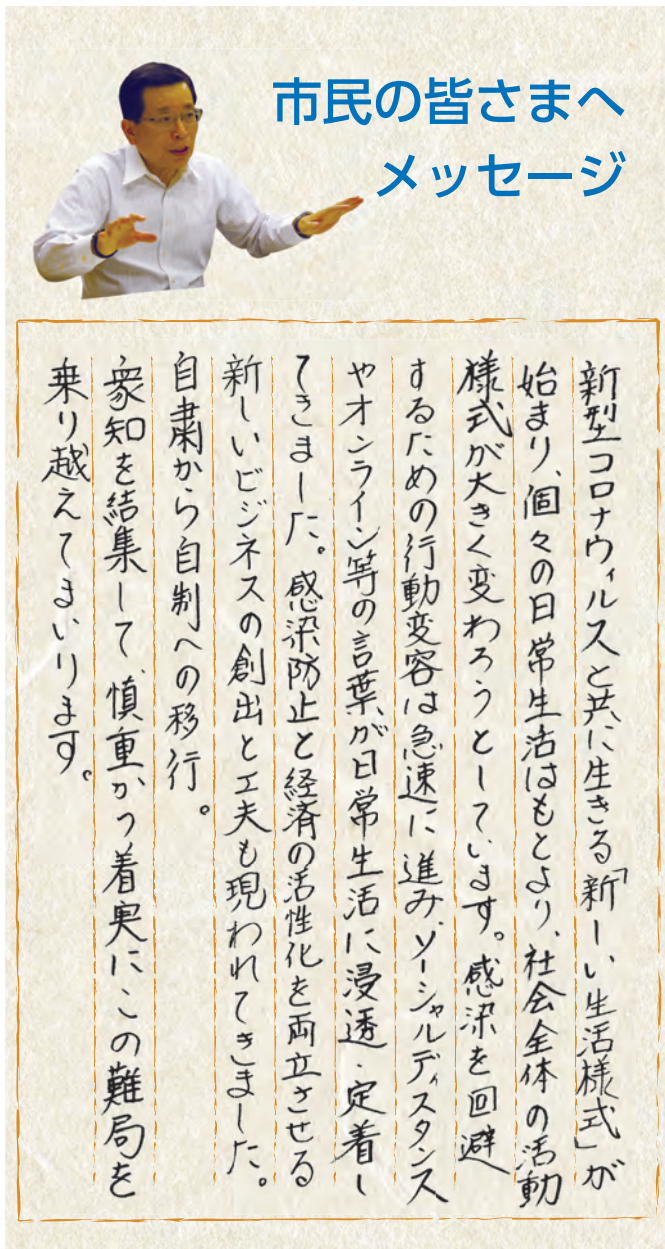 市民の皆さまへ
メッセージ
新型コロナウィルスと共に生きる「新しい生活様式」が
始まり、個々の日常生活はもとより、社会全体の活動
様式が大きく変わろうとしています。感染を回避
するための行動変容は急速に進み、ソーシャルディスタンス
やオンライン等の言葉が日常生活に浸透・定着し
てきました。感染防止と経済の活性化を両立させる
新しいビジネスの創出と工夫も現われてきました。
自粛から自制への移行。
衆知を結集して、慎重かつ着実にこの難局を
乗り越えてまいります。